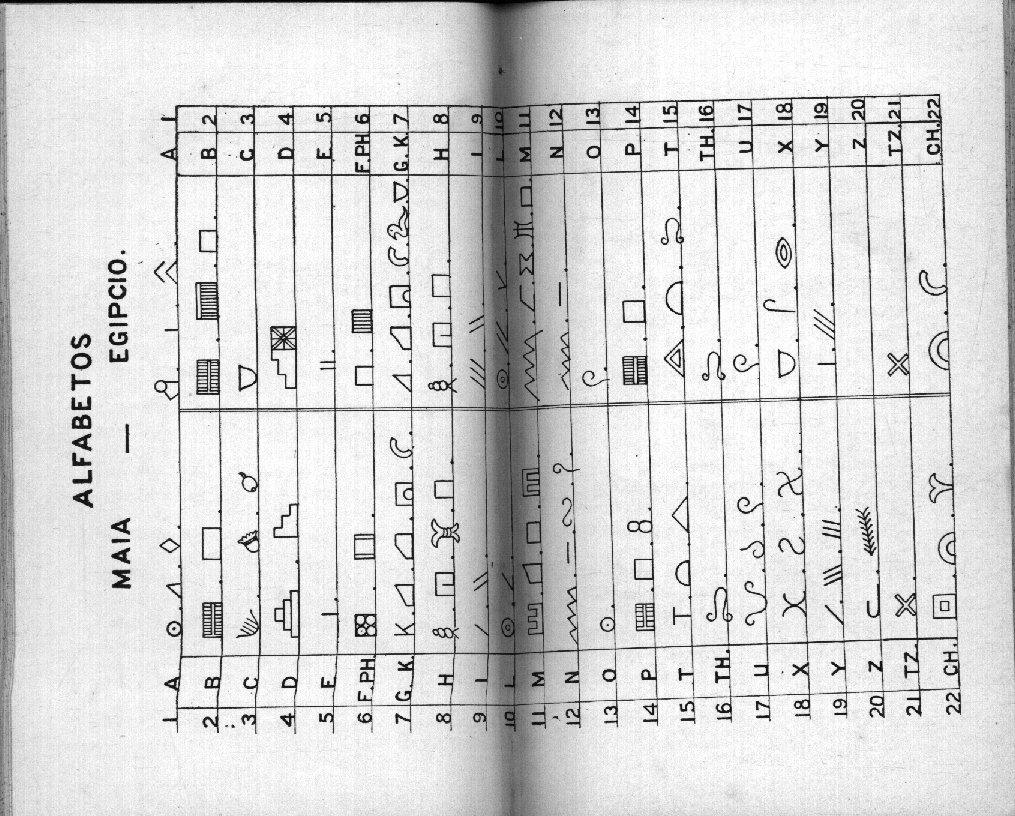 ALFABETOS
MAIA — EGIPCIO.
1 A A 1
2 B B 2
3 C C 3
4 D D 4
5 E E 5
6 F.PH. F.PH. 6
7 G. K. G. K. 7
8 H H 8
9 I I 9
10 L L 10
11 M M 11
12 N N 12
13 O O 13
14 P P 14
15 T T 15
16 TH. TH. 16
17 U U 17
18 X X 18
19 Y Y 19
20 Z Z 20
21 TZ. TZ. 21
22 CH. CH. 22